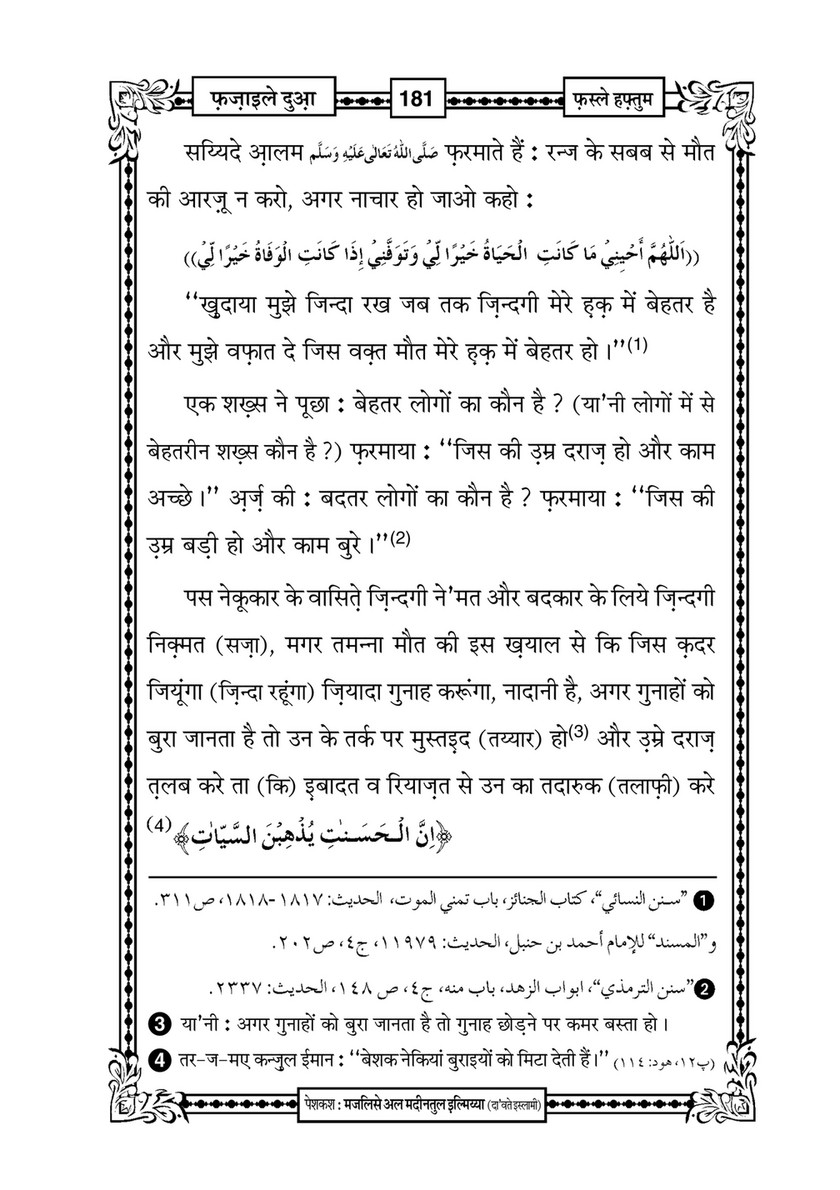 फ़ज़ाइले दुआ़
181
फ़स्ले हफ़्तुम
सय्यिदे आ़लम صَلَّى اللّٰهُ تَعَالٰى عَلَيْهِ وَسَلَّم फ़रमाते हैं : रन्ज के सबब से मौत
की आरज़ू न करो, अगर नाचार हो जाओ कहो :
((اَللّٰهُمَّ أَحْيِنِيْ مَا كَانَتِ الْحَيَاةُ خَيْرًا لِّيْ وَتَوَفَّنِيْ إِذَا كَانَتِ الْوَفَاةُ خَيْرًا لِّيْ))
‘‘खुदाया मुझे जिन्दा रख जब तक ज़िन्दगी मेरे ह़क़ में बेहतर है
और मुझे वफ़ात दे जिस वक़्त मौत मेरे ह़क़ में बेहतर हो ।’’(1)
एक शख़्स ने पूछा : बेहतर लोगों का कौन है ? (या'नी लोगों में से
बेहतरीन शख़्स कौन है ?) फ़रमाया : ‘‘जिस की उ़म्र दराज़ हो और काम
अच्छे ।’’ अ़र्ज़ की : बदतर लोगों का कौन है ? फ़रमाया : ‘‘जिस की
उ़म्र बड़ी हो और काम बुरे ।’’(2)
पस नेकूकार के वासिते़ ज़िन्दगी ने'मत और बदकार के लिये ज़िन्दगी
निक़्मत (सज़ा), मगर तमन्ना मौत की इस ख़याल से कि जिस क़दर
जियूंगा (ज़िन्दा रहूंगा) ज़ियादा गुनाह करूंगा, नादानी है, अगर गुनाहों को
बुरा जानता है तो उन के तर्क पर मुस्तइ़द (तय्यार) हो(3) और उ़म्रे दराज़
त़लब करे ता (कि) इ़बादत व रियाज़त से उन का तदारुक (तलाफ़ी) करे
﴿اِنَّ الْحَسَنٰتِ يُذْهِبْنَ السَّيِّاٰتِ﴾(4)
1 ”سنن النسائي“، كتاب الجنائز، باب تمني الموت، الحديث: ١٨١٧-١٨١٨، ص٣١١.
و”المسند“ للإمام أحمد بن حنبل، الحديث: ١١٩٧٩، ج٤، ص٢٠٢.
2 ”سنن الترمذي“، ابواب الزهد، باب منه، ج٤، ص ١٤٨، الحديث: ٢٣٣٧.
3 या'नी : अगर गुनाहों को बुरा जानता है तो गुनाह छोड़ने पर कमर बस्ता हो ।
4 तर-ज-मए कन्ज़ुल ईमान : ‘‘बेशक नेकियां बुराइयों को मिटा देती हैं ।’’ (پ١٢، هود: ١١٤)
पेशकश : मजलिसे अल मदीनतुल इ़ल्मिय्या (दा'वते इस्लामी)